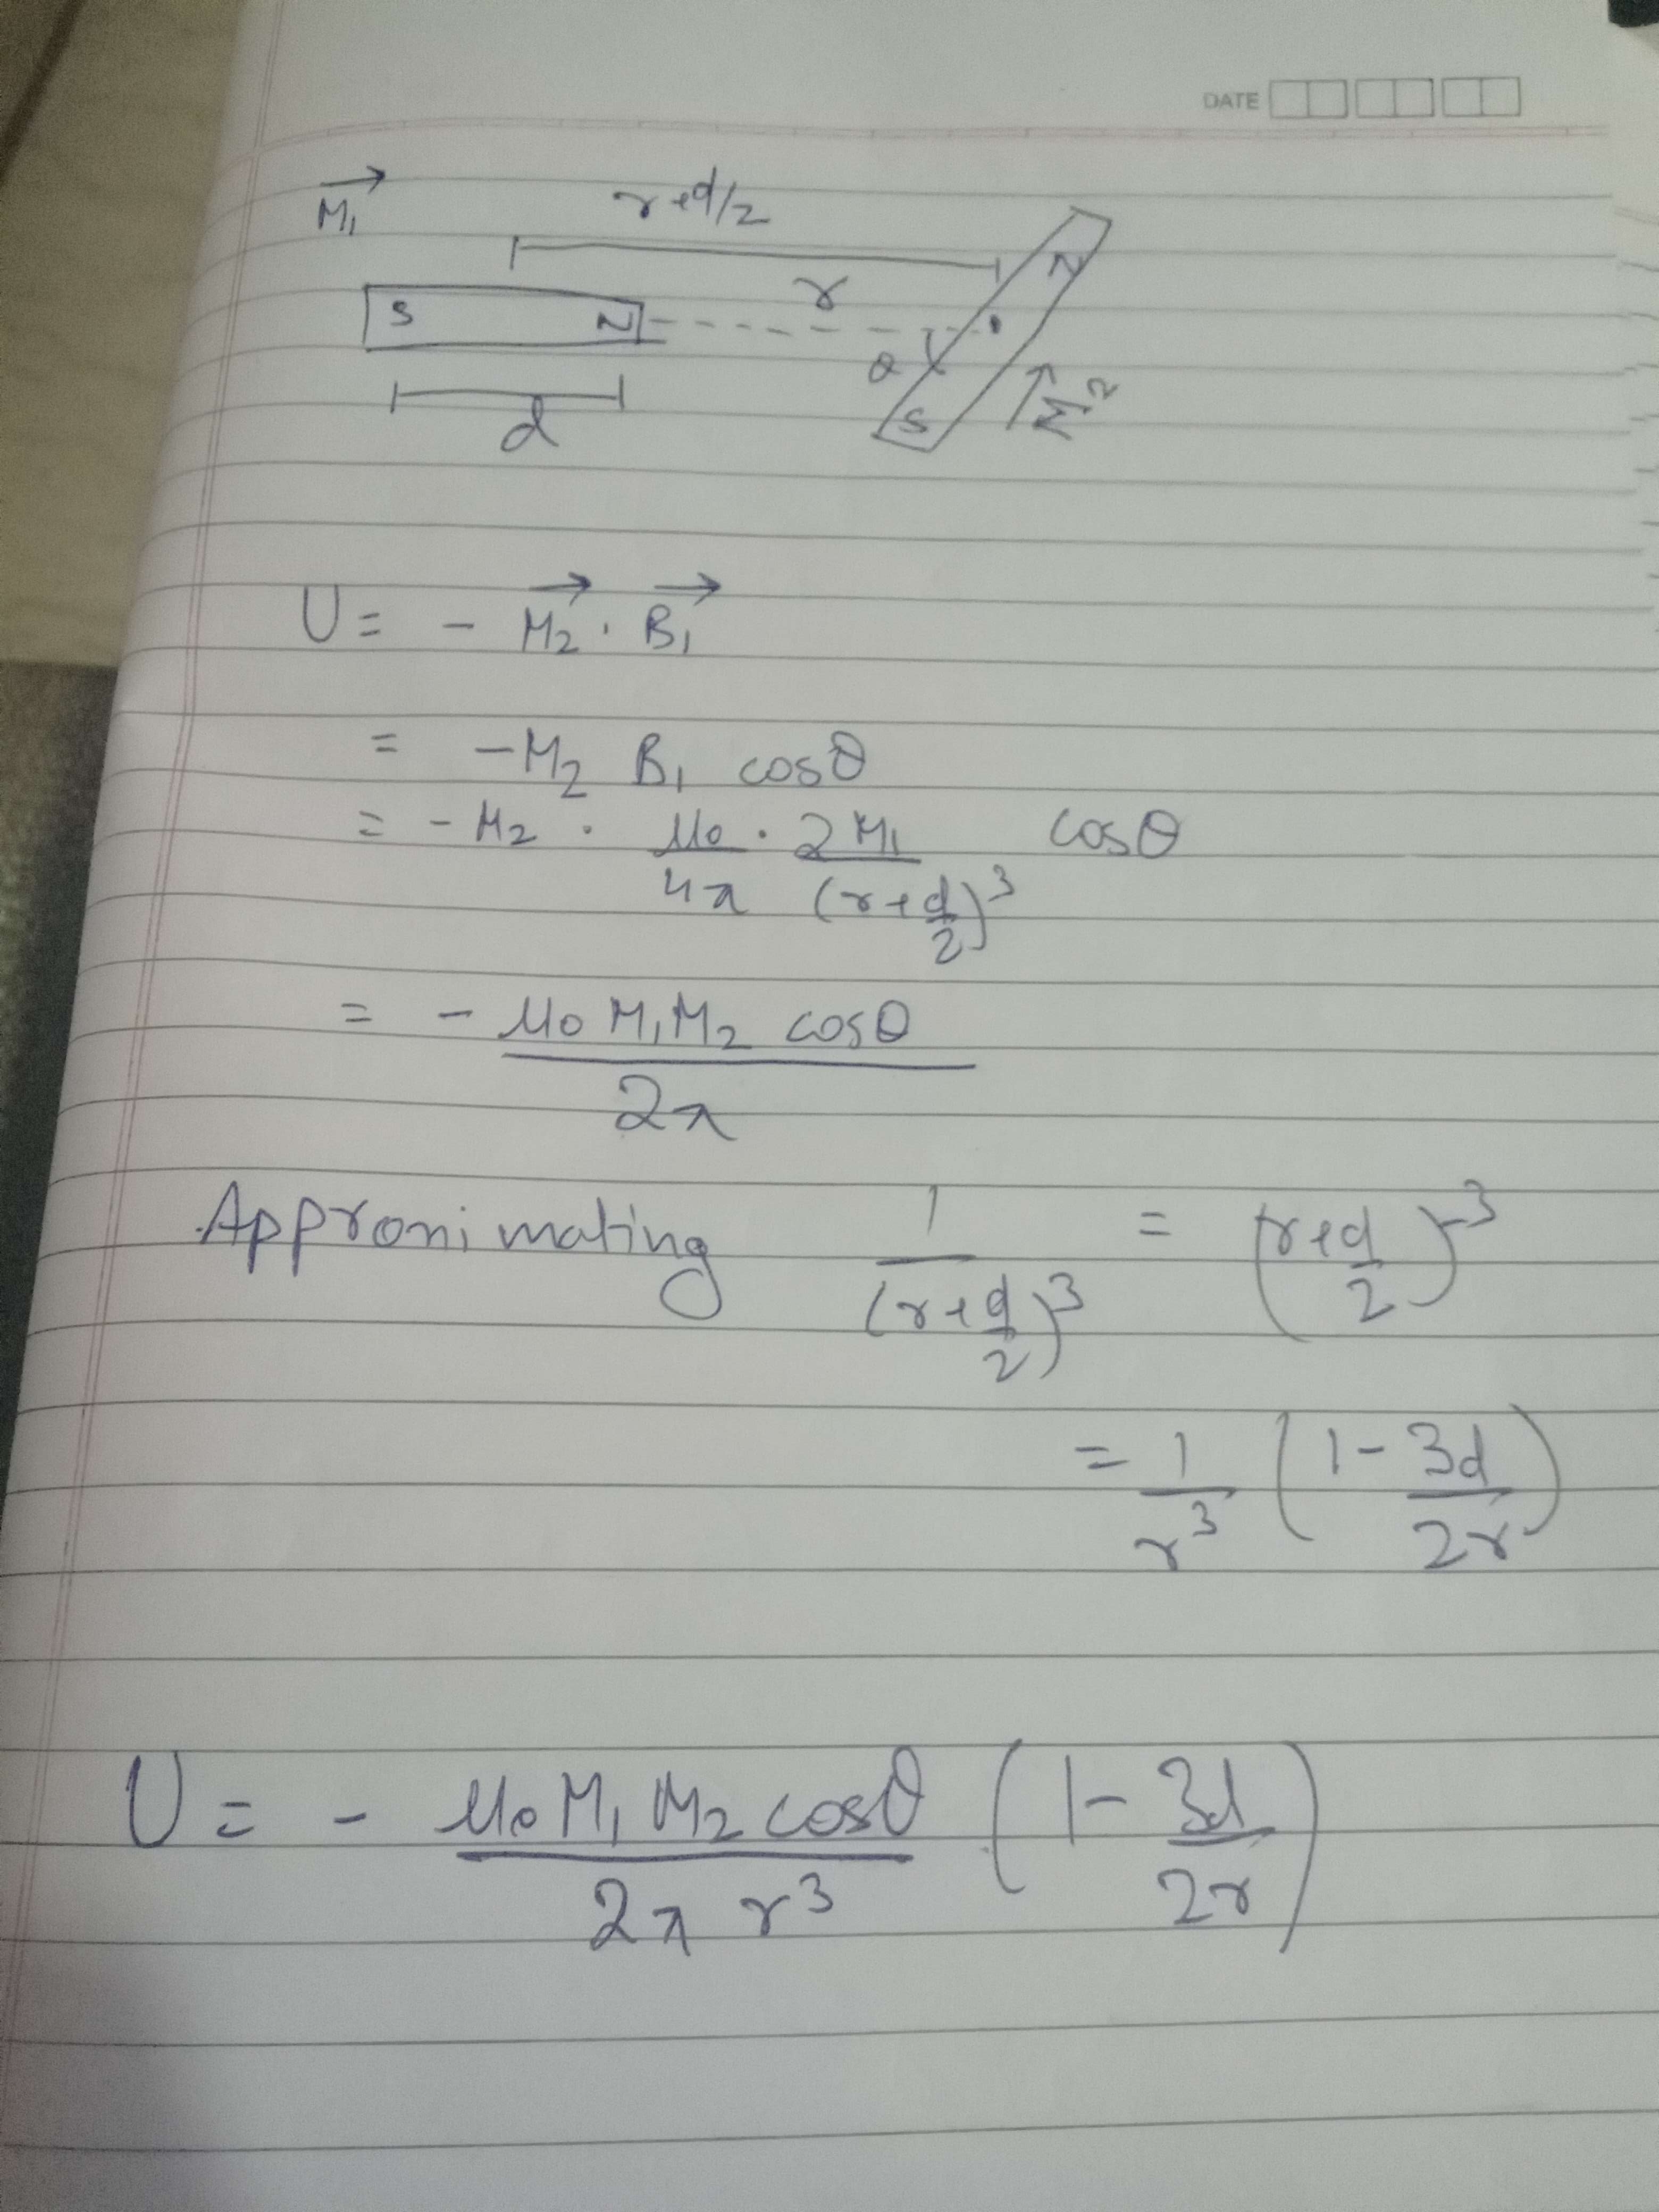 DATE
M₁ (→ above)
r+d/2
r
S N
N
θ
S
M₂ (→ above)
d
U = - M₂ (→ above) . B₁ (→ above)
= - M₂ B₁ cosθ
= - M₂ . μ₀/4π . 2M₁/(r+d/2)³ cosθ
= - μ₀ M₁M₂ cosθ / 2π
Approximating 1/(r+d/2)³ = (r+d/2)⁻³
= 1/r³ (1 - 3d/2r)
U = - μ₀ M₁ M₂ cosθ / 2π r³ (1 - 3d/2r)